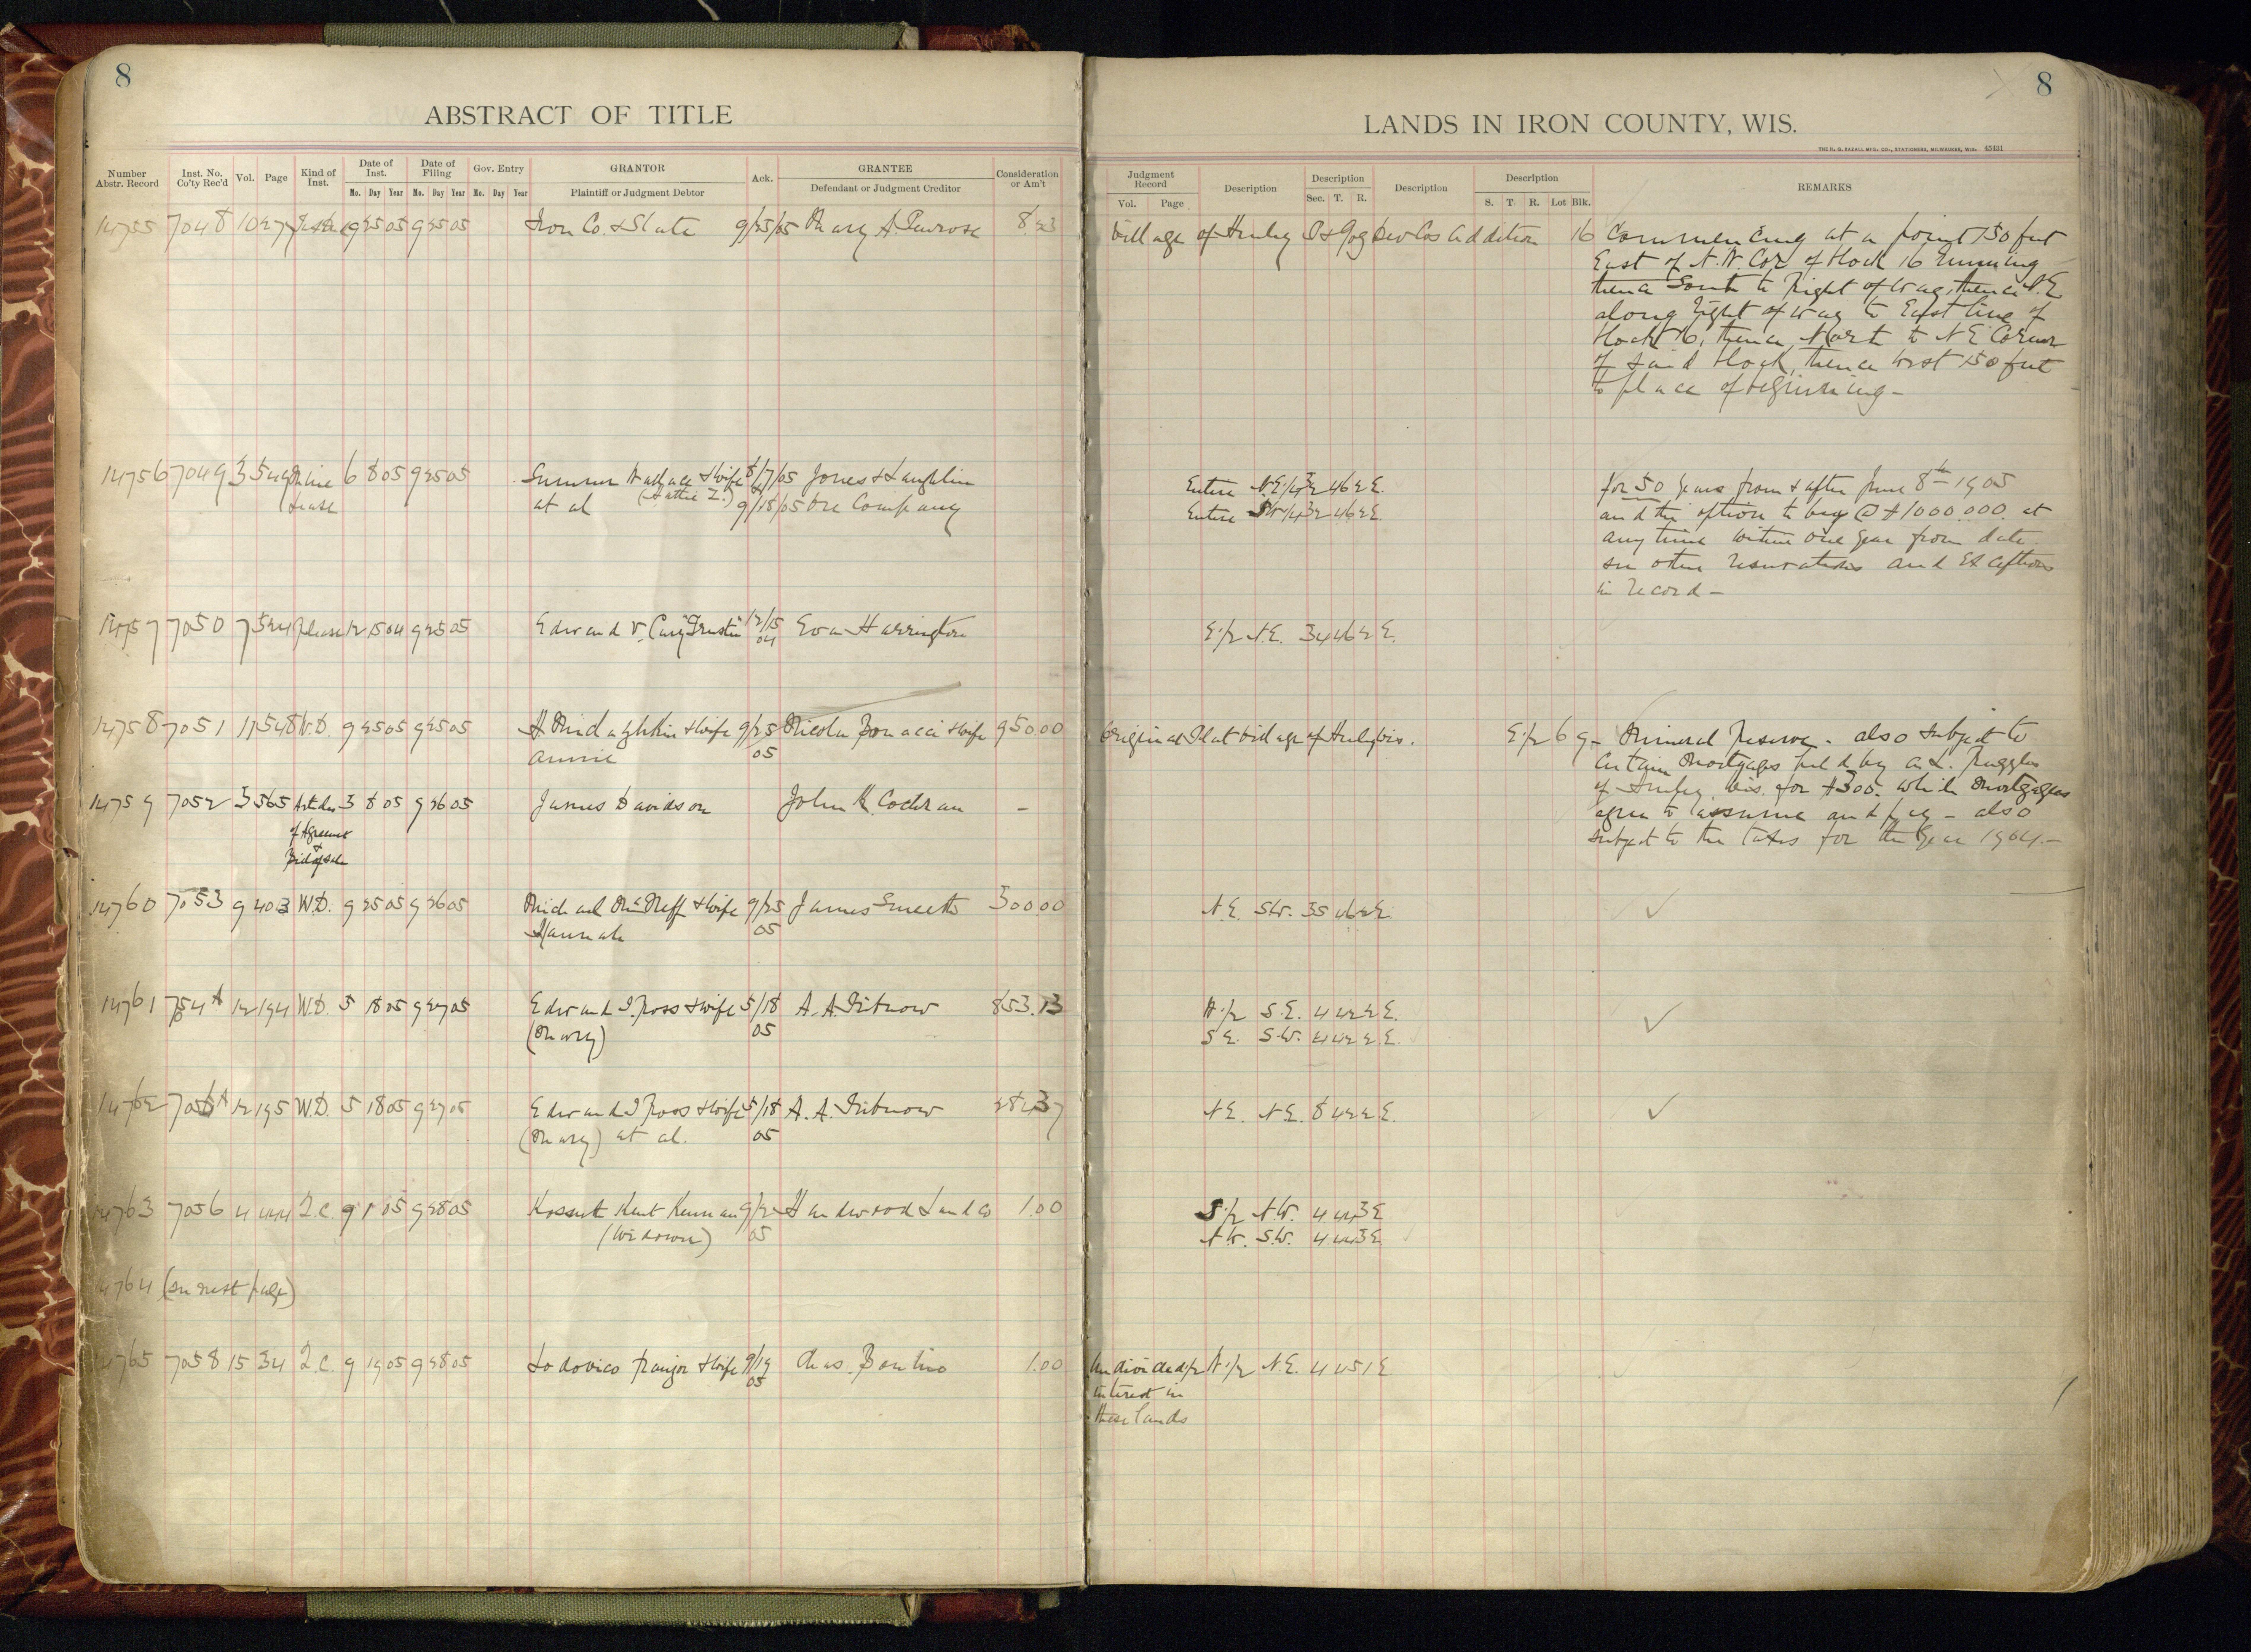 8
ABSTRACT OF TITLE
Number Abstr. Record
Inst. No. Co'ty Rec'd
Vol.
Page
Kind of Inst.
Date of Inst.
Date of Filing
Gov. Entry
GRANTOR
Plaintiff or Judgment Debtor
Ack.
GRANTEE
Defendant or Judgment Creditor
Consideration or Am't
Mo. Day Year Mo. Day Year Mo. Day Year
14755 7048 10 9 25 05 9 25 05 Iron Co. & State 9/25/05 Mary A. Penrose 8.23
14756 7049 3 549 Mine 6 8 05 9 25 05 Sumner Wallace & wife 8/7/05 Jones & Laughlin
Lease (Hattie I.)
et al 9/18/05 Ore Company
14757 7050 7 524 12 15 04 9 25 05 Edward V. Cary "Trustee" 12/15 Eva Harrington
04
14758 7051 11 548 W.D. 9 25 05 9 25 05 & wife 9/25 Nicola Bonacci & wife 950.00
Annie 05
14759 7052 3 565 3 8 05 9 26 05 James Davidson John R. Cochran -
of Agreement
&
Bill of sale
14760 7053 9 403 W.D. 9 25 05 9 26 05 Michael & wife 9/25 James Smeeth 300.00
Hannah 05
14761 7054 A 12 194 W.D. 5 18 05 9 27 05 Edward I. Ross & wife 5/18 A. A. 853.13
(Mary) 05
14762 12 195 W.D. 5 18 05 9 27 05 Edward I Ross & wife 5/18 A. A.
(Mary) et al. 05
14763 7056 4 444 Q.C. 9 1 05 9 28 05 Kossuth Kent Kennan Hardwood Land Co 1.00
(Widower) 05
14764 (see next page)
14765 7058 15 34 Q.C. 9 19 05 9 28 05 Lodovico & wife 9/19 Chas. 1.00
05
8
LANDS IN IRON COUNTY, WIS.
THE H. G. RAZALL MFG. CO., STATIONERS, MILWAUKEE, WIS. 45431
Judgment Record
Vol. Page
Description
Description
Sec. T. R.
Description
Description
S. T. R. Lot Blk.
REMARKS
Village of Hurley I & Gog Dev Cos Addition 16 Commencing at a point 150 feet
East of N.W. Cor of Block 16 running
thence South to Right of Way, thence S.E
along Right of Way to East line of
Block 16, thence North to N E Corner
of said Block, thence West 150 feet
to place of beginning -
Entire N.E. 1/4 32 46 2 E. for 50 years from & after June 8th 1905
Entire S.W. 1/4 32 46 2 E. and the option to buy @ $1000.000. at
any time within one year from date.
see other reservations and Exceptions
in record -
E. 1/2 N.E. 34 46 2 E.
Original Plat Village of Hurley Wis. E. 1/2 6 9 - Mineral Reserve - also subject to
certain Mortgages held by A. L. Ruggles
of Hurley, Wis. for $300. which Mortgages
agree to assume and pay - also
subject to the taxes for the year 1904. -
N.E. S.W. 35 46 2 E.
N. 1/2 S.E. 4 42 2 E.
S E. S.W. 4 42 2 E.
N.E. N.E. 8 42 2 E.
S. 1/2 N.W. 4 44 3 E
N.W. S.W. 4 44 3 E
Undivided 1/2 N. 1/2 N.E. 4 45 1 E
interest in
these lands